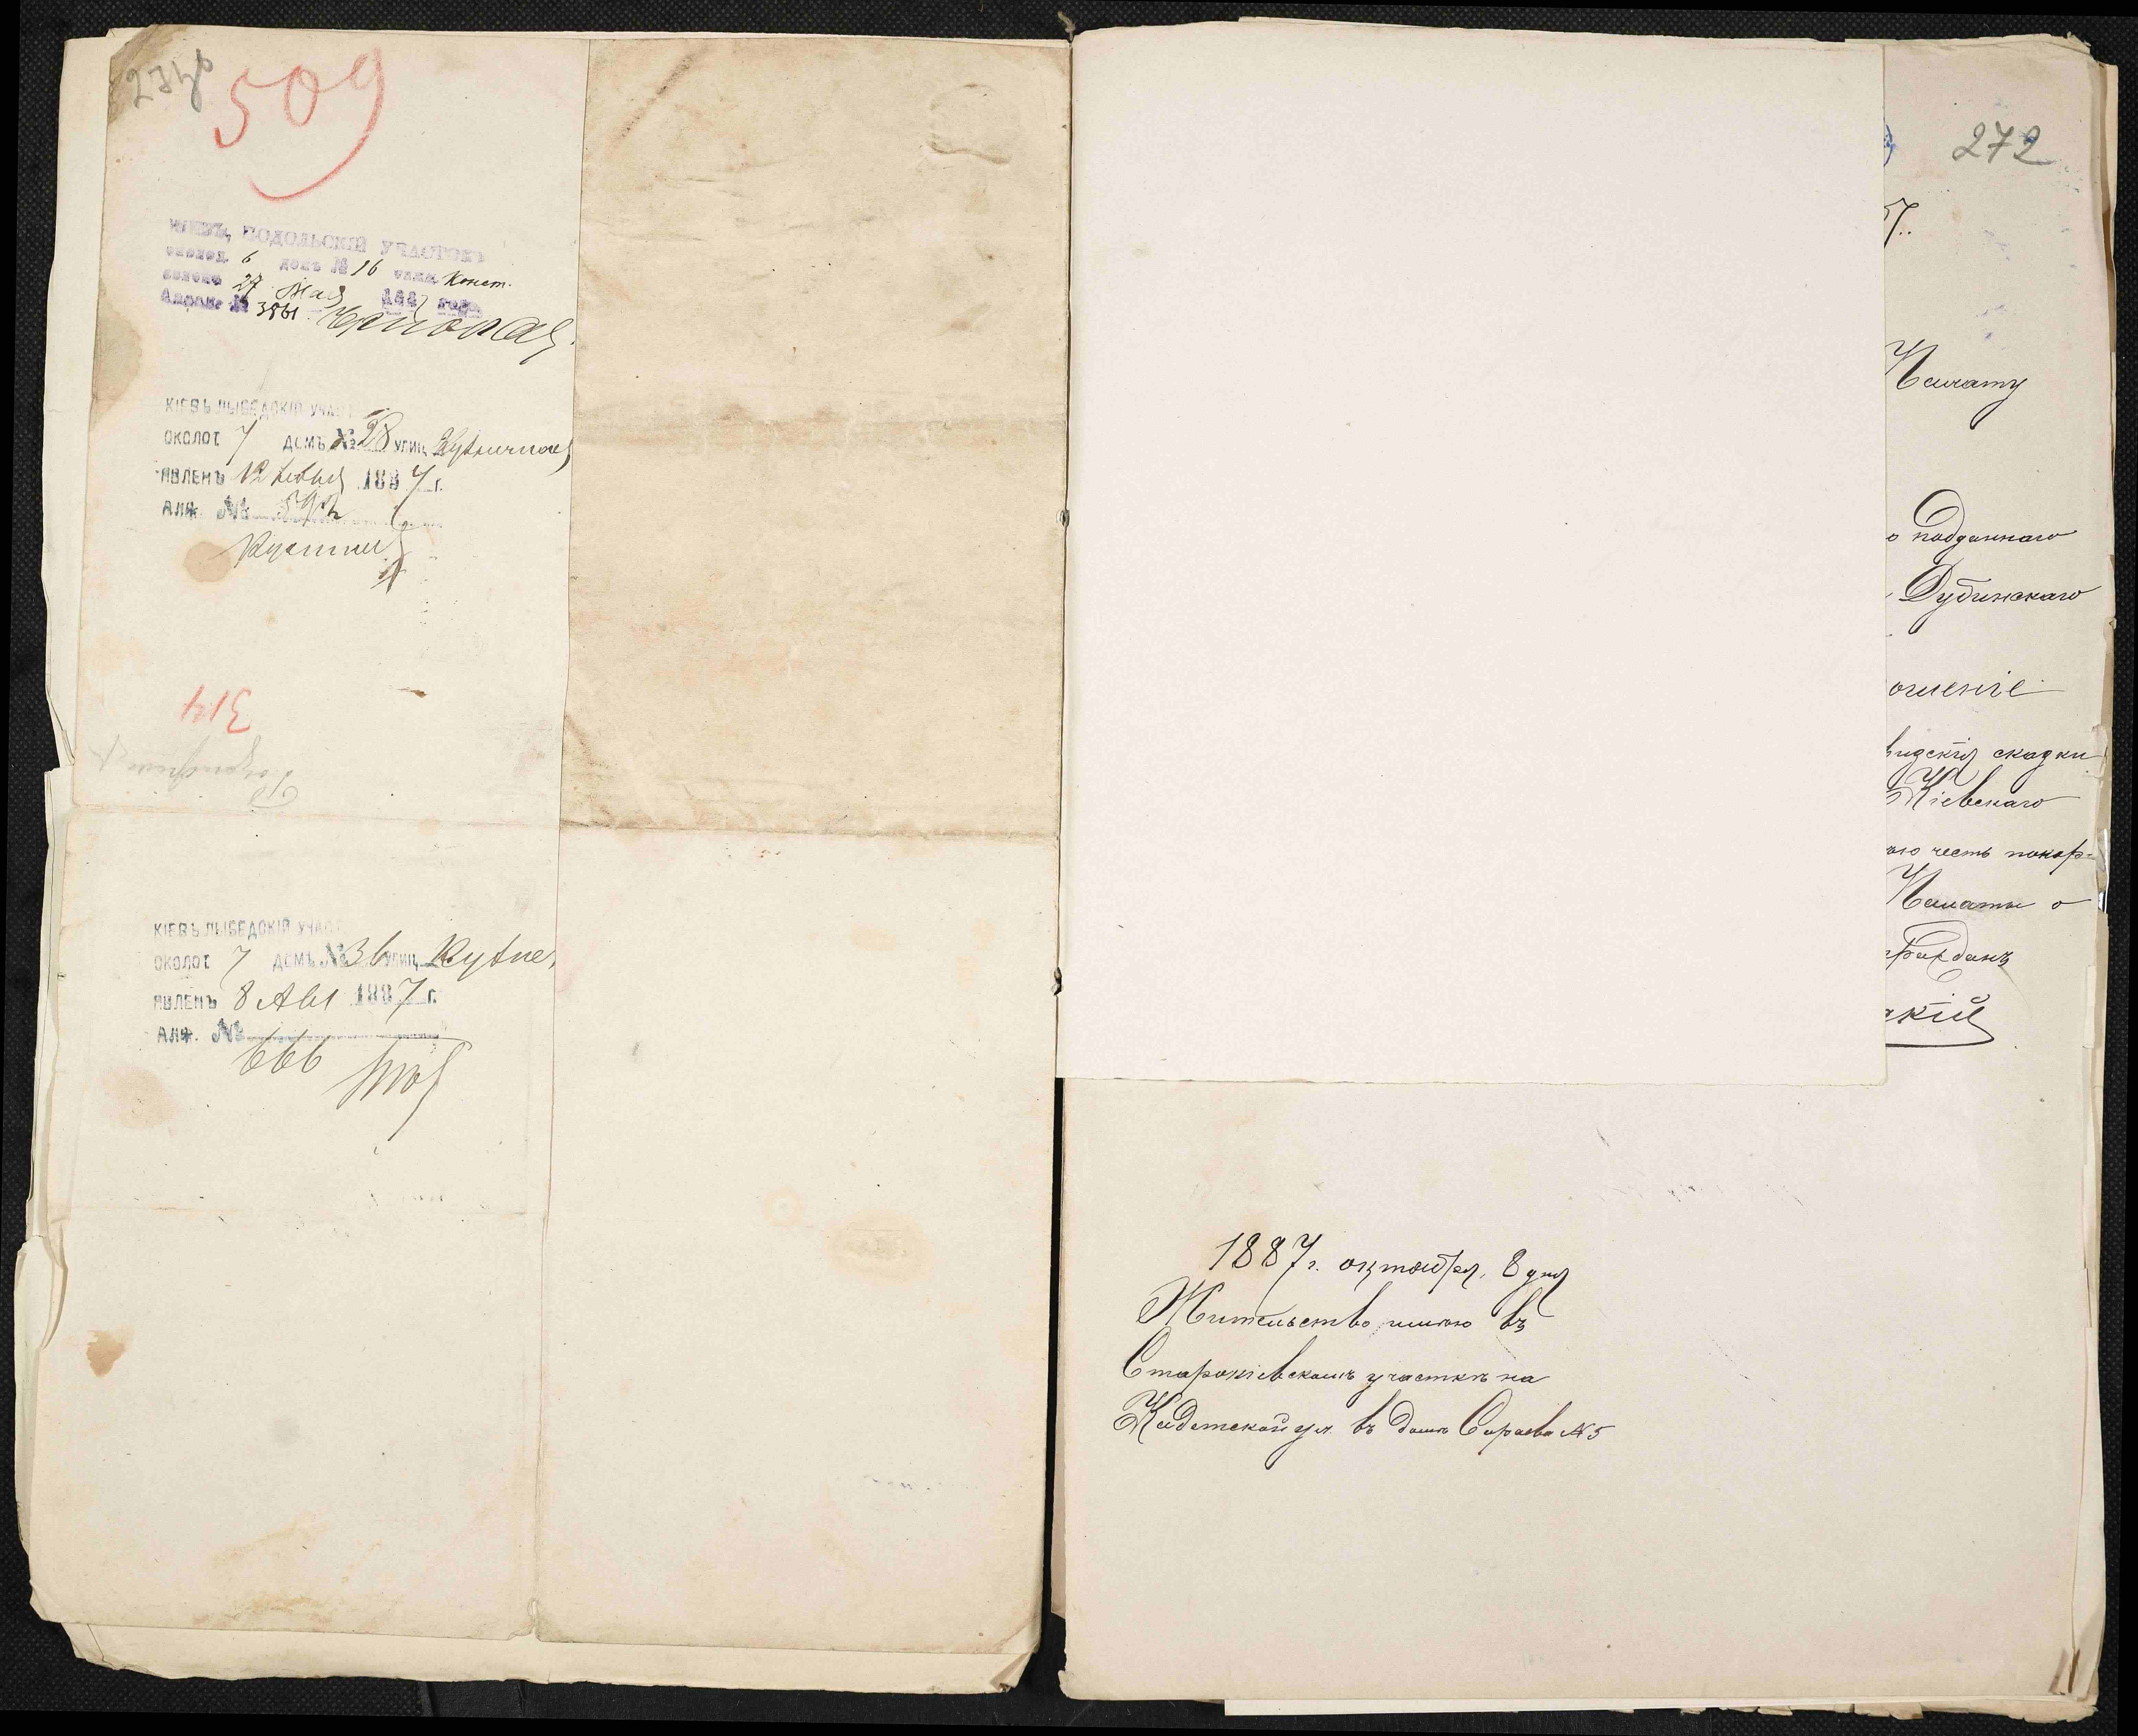 509
КІЕВЪ, ПОДОЛЬСКІЙ УЧАСТОКЪ
околод. 6 домъ № 16 улиц. Конст.
явлено 27 Мая 1887 года
№ 3861
КІЕВЪ ЛЫБЕДСКІЙ УЧАСТ
ОКОЛОТ 7 ДОМЪ № 28 УЛИЦ
ЯВЛЕНЪ 12 1887 г.
АЛФ. № 592
314
КІЕВЪ ЛЫБЕДСКІЙ УЧАСТ
ОКОЛОТ 7 ДОМЪ № 36 УЛИЦ
ЯВЛЕНЪ 8 Авг 1887 г.
АЛФ. №
666
272
7..
Палату
о подданнаго
Дубинскаго
ошеніе
скадки
Кіевскаго
ою честь покор-
Палаты о
гражданъ
скій
1887 г. октября, 8 дня
Жительство имѣю въ
Старокіевскомъ участкѣ на
Кадетской ул. въ домѣ Сараева № 5